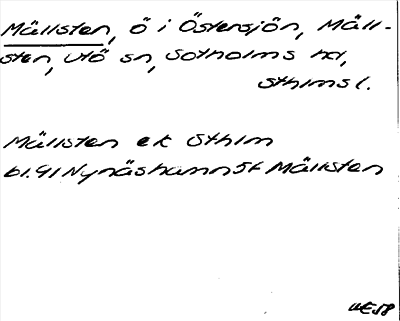 Mällsten, ö i Östersjön, Mäll-
sten, Utö sn, Sotholms hd,
Sthlms l.
Mällsten ek Sthlm
bl. 91 Nynäshamn St Mällsten